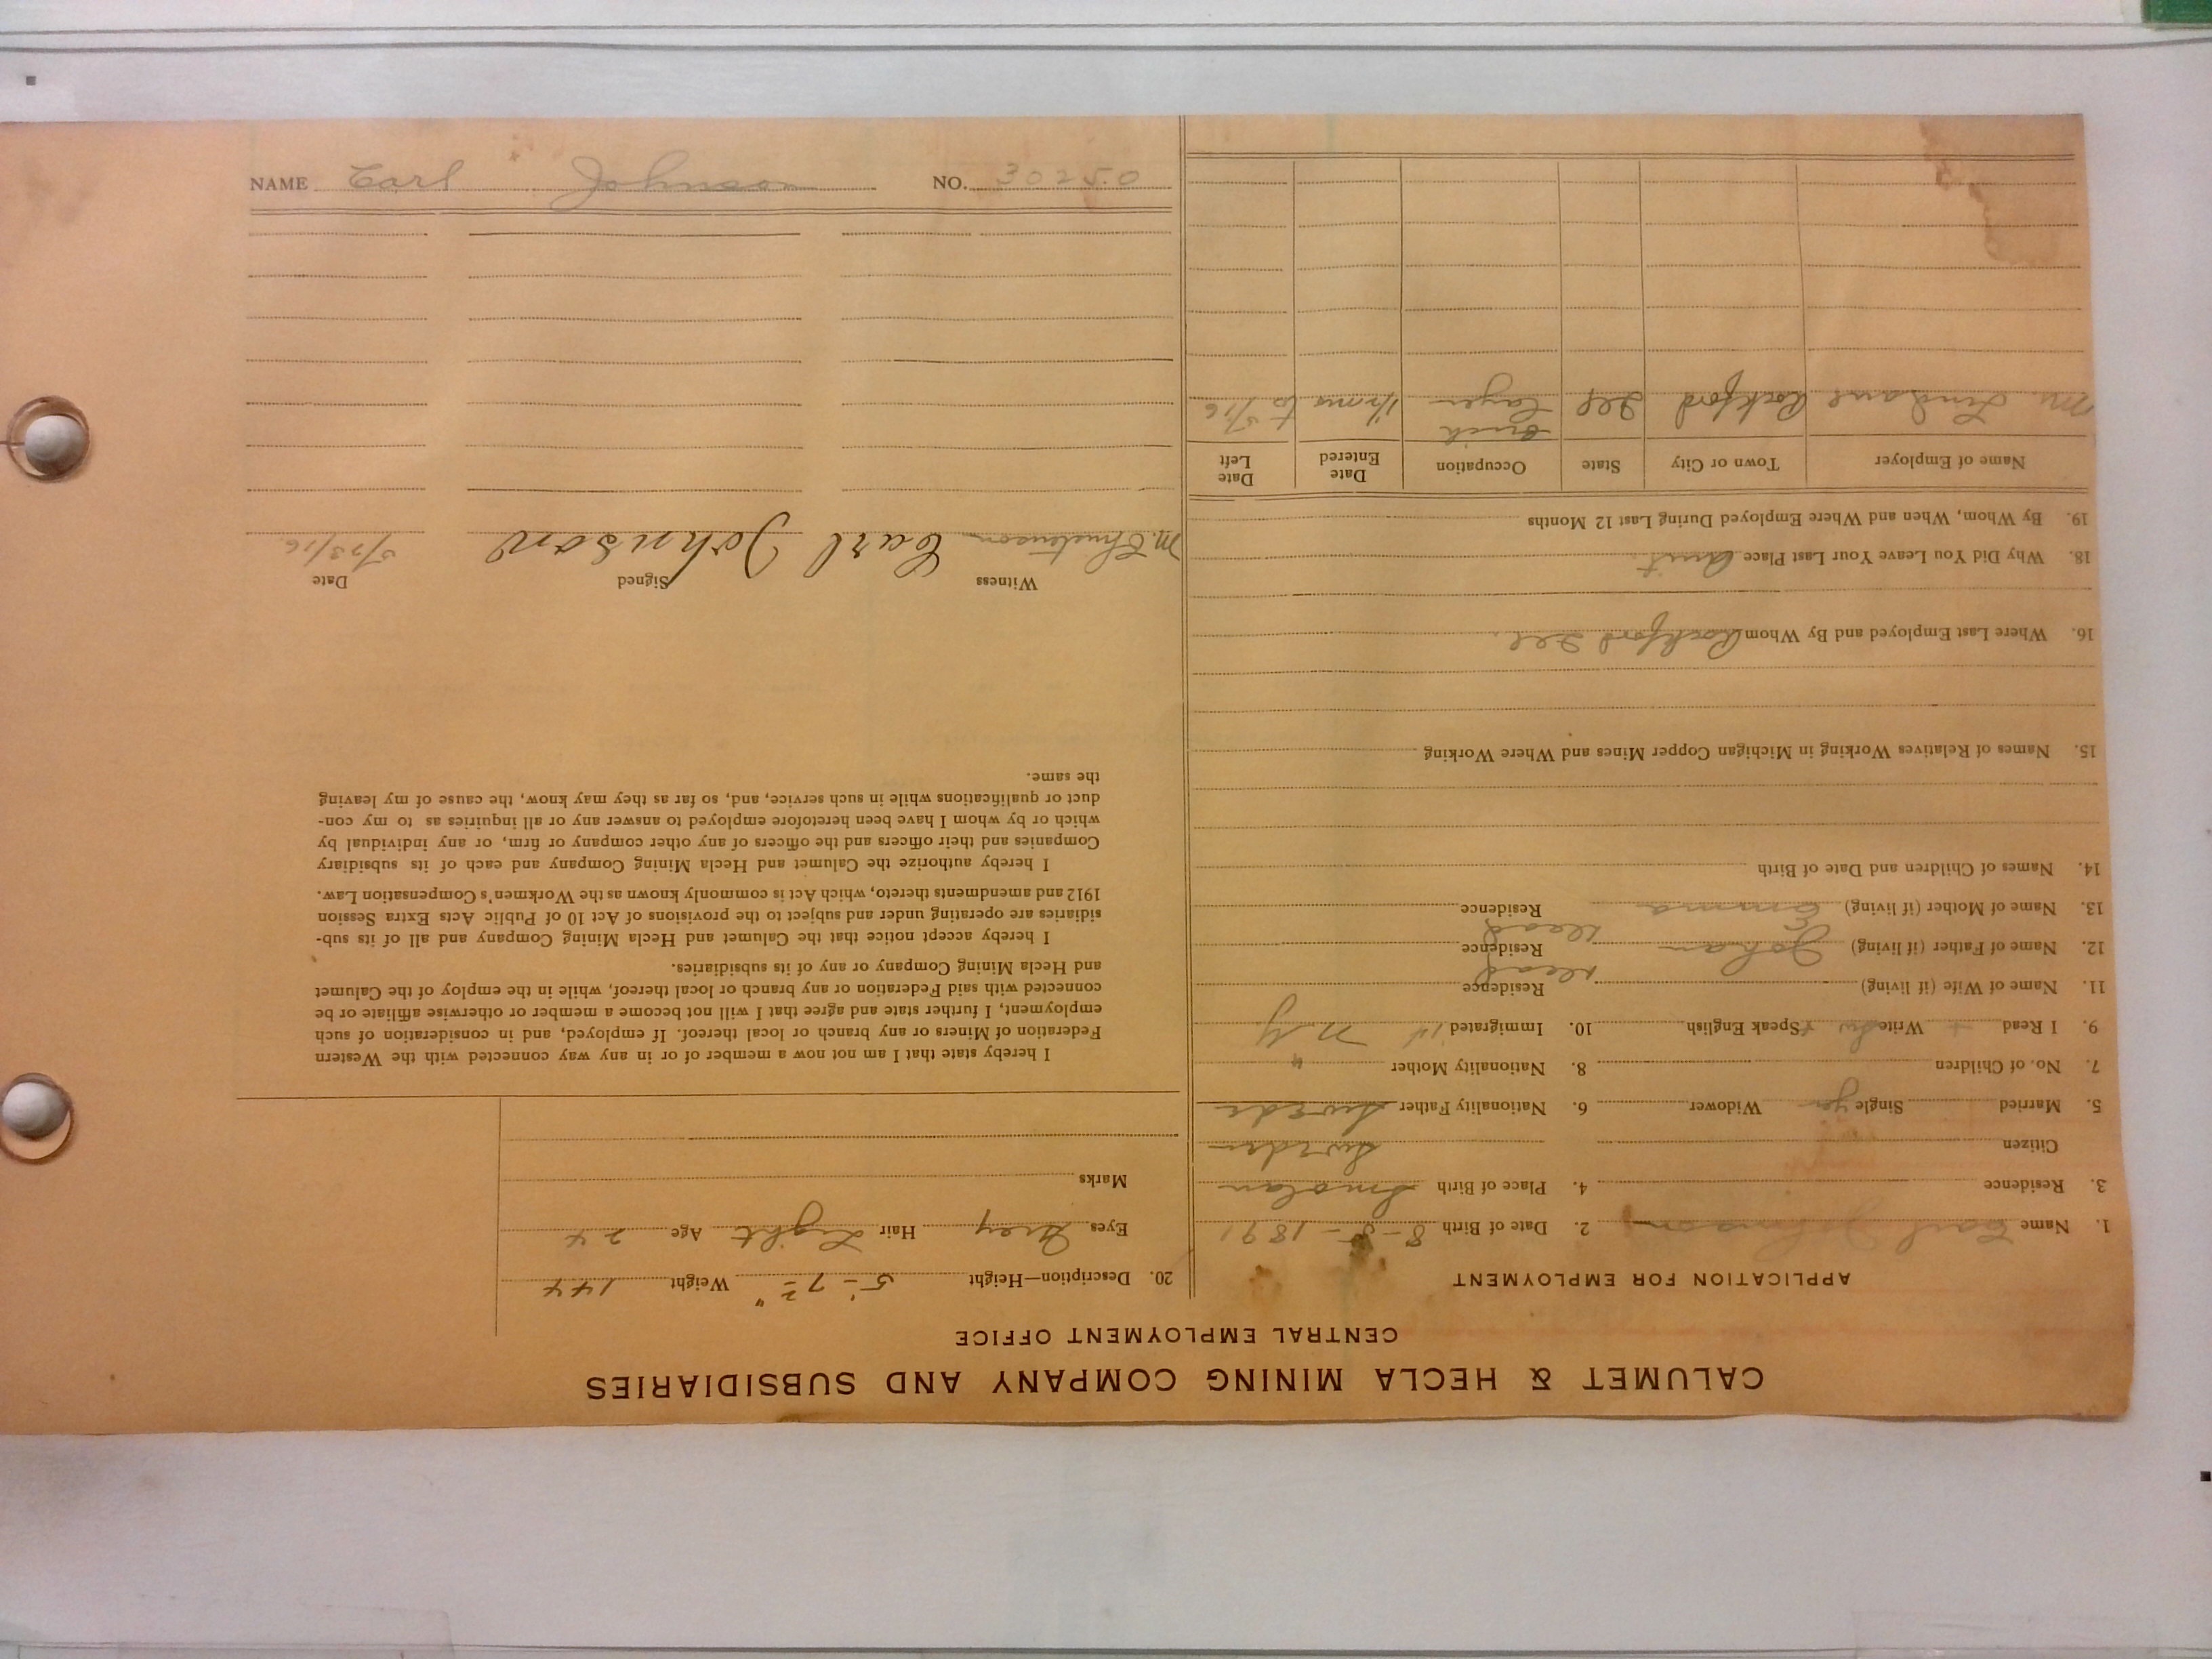 CALUMET & HECLA MINING COMPANY AND SUBSIDIARIES
CENTRAL EMPLOYMENT OFFICE
APPLICATION FOR EMPLOYMENT
1. Name Carl Johnson 2. Date of Birth 8-8-1891
3. Residence 4. Place of Birth Smolan
Citizen Sweden
5. Married Single yes Widower 6. Nationality Father Swede
7. No. of Children 8. Nationality Mother "
9. I Read + Write Sw + Speak English 10. Immigrated N.Y.
11. Name of Wife (if living) Residence
12. Name of Father (if living) Johan Residence dead
13. Name of Mother (if living) Emma Residence dead
14. Names of Children and Date of Birth
15. Names of Relatives Working in Michigan Copper Mines and Where Working
16. Where Last Employed and By Whom Rockford Ill.
18. Why Did You Leave Your Last Place Quit
19. By Whom, When and Where Employed During Last 12 Months
Name of Employer Town or City State Occupation Date Entered Date Left
Mr. Rockford Ill Brick Layer 1½ mos to 5/16
20. Description—Height 5'-7½" Weight 144
Eyes Grey Hair Light Age 24
Marks
I hereby state that I am not now a member of or in any way connected with the Western
Federation of Miners or any branch or local thereof. If employed, and in consideration of such
employment, I further state and agree that I will not become a member or otherwise affiliate or be
connected with said Federation or any branch or local thereof, while in the employ of the Calumet
and Hecla Mining Company or any of its subsidiaries.
I hereby accept notice that the Calumet and Hecla Mining Company and all of its sub-
sidiaries are operating under and subject to the provisions of Act 10 of Public Acts Extra Session
1912 and amendments thereto, which Act is commonly known as the Workmen's Compensation Law.
I hereby authorize the Calumet and Hecla Mining Company and each of its subsidiary
Companies and their officers and the officers of any other company or firm, or any individual by
which or by whom I have been heretofore employed to answer any or all inquiries as to my con-
duct or qualifications while in such service, and, so far as they may know, the cause of my leaving
the same.
Witness Signed Date
M. Christenson Carl Johnson 5/23/16
NAME Carl Johnson NO. 30250